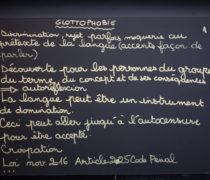 GLOTTOPHOBIE
Discrimination, rejet parfois moquerie au
prétexte de la langue (accents façon de
parler)
Découverte pour les personnes du groupe
du terme, du concept et de ses conséquences
→ autoréflexion
La langue peut être un instrument
de domination.
Ceci peut aller jusqu'à l'autocensure
pour être accepté.
Crispation
Loi nov. 2016 Article 225 Code Pénal